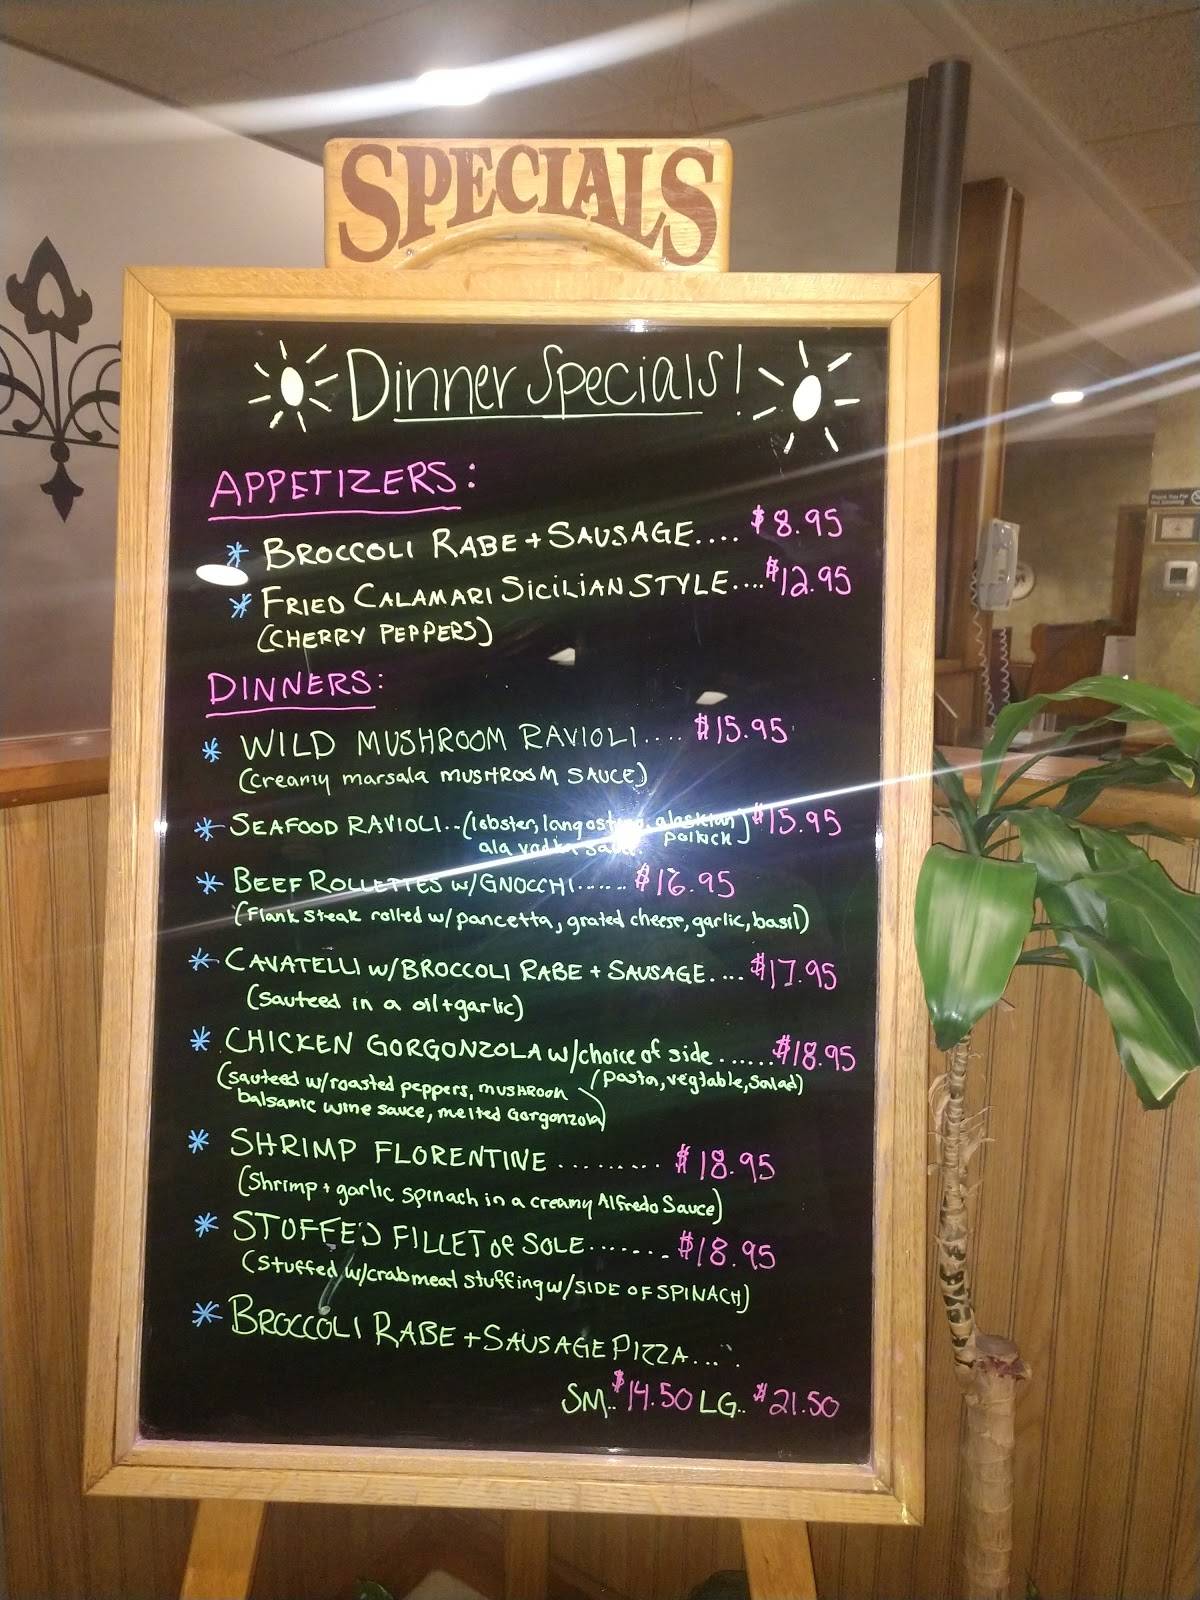 SPECIALS
Dinner Specials!
APPETIZERS:
* BROCCOLI RABE + SAUSAGE.... $8.95
* FRIED CALAMARI SICILIAN STYLE.... $12.95
(CHERRY PEPPERS)
DINNERS:
* WILD MUSHROOM RAVIOLI.... $15.95
(creamy marsala MUSHROOM SAUCE)
* SEAFOOD RAVIOLI..(lobster, langostino, alaskian $15.95
ala vodka sauce pollick)
* BEEF ROLLETTES w/GNOCCHI...... $16.95
(Flank steak rolled w/pancetta, grated cheese, garlic, basil)
* CAVATELLI w/BROCCOLI RABE + SAUSAGE.... $17.95
(sauteed in a oil+garlic)
* CHICKEN GORGONZOLA w/choice of side ......$18.95
(Pasta, vegtable, salad)
(sauteed w/roasted peppers, MUSHROOM
balsamic wine sauce, melted Gorgonzola)
* SHRIMP FLORENTINE ......... $18.95
(Shrimp + garlic spinach in a creamy Alfredo Sauce)
* STUFFED FILLET OF SOLE....... $18.95
(stuffed w/crabmeat stuffing w/SIDE OF SPINACH)
* BROCCOLI RABE + SAUSAGE PIZZA.....
SM..$14.50 LG..$21.50